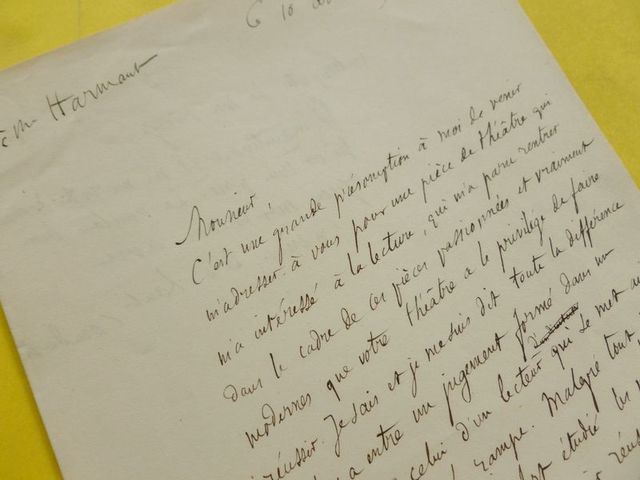 à Mr Harmant
Monsieur,
C'est une grande présomption à moi de venir
m'adresser à vous pour une pièce de théâtre qui
m'a intéressé à la lecture, qui m'a paru rentrer
dans le cadre de ces pièces passionnées et vraiment
modernes que votre théâtre a le privilège de faire
réussir. Je sais et je me suis dit toute la différence
a entre un jugement formé dans un
celui d'un lecteur qui se met
rampe. Malgré tout,
étudié les